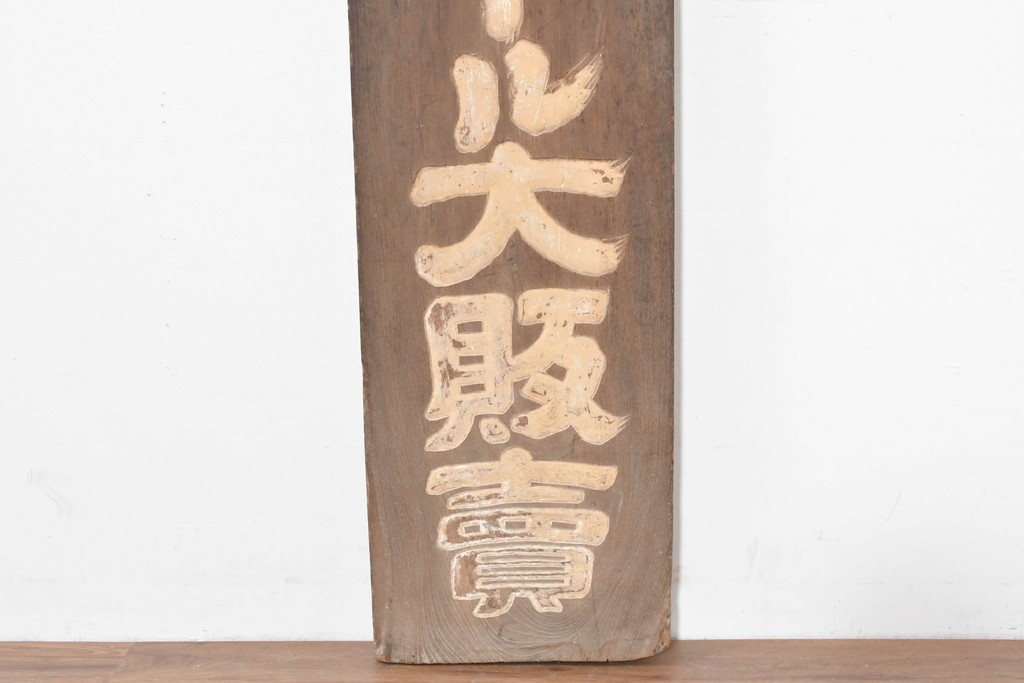 ール大販賣